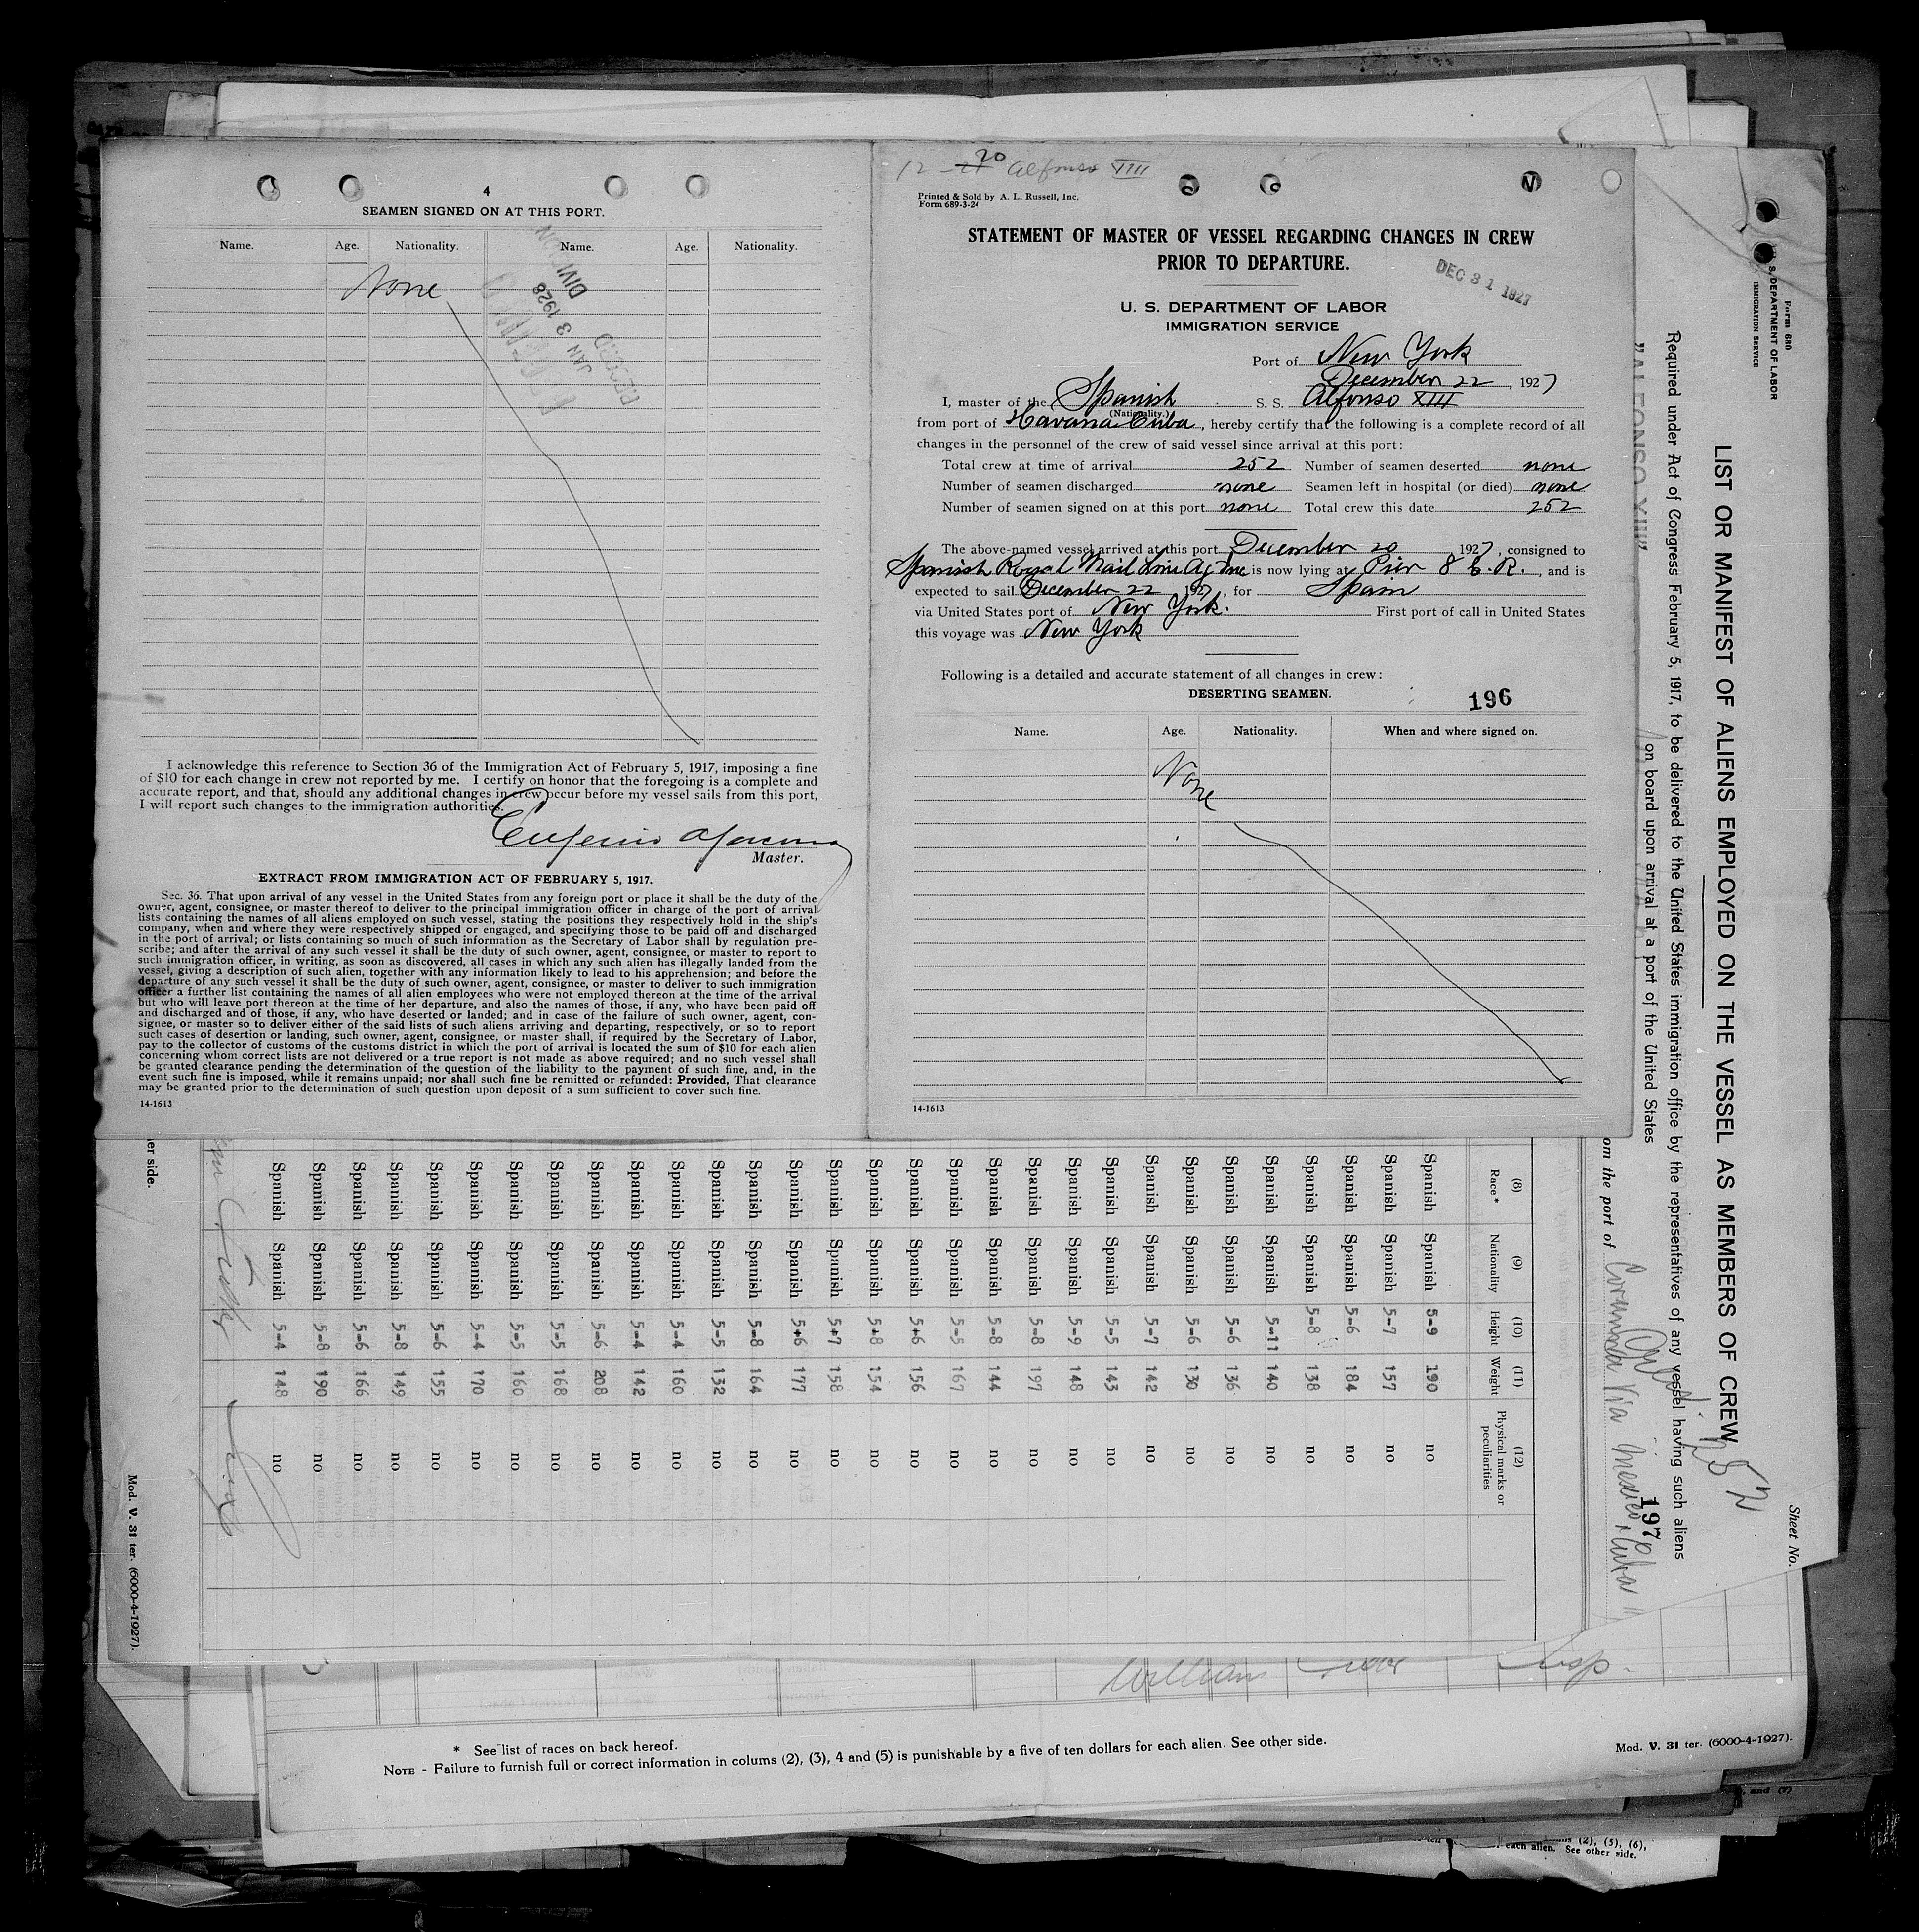 4
SEAMEN SIGNED ON AT THIS PORT.
Name. Age. Nationality. Name. Age. Nationality.
None
JAN 3 1928
I acknowledge this reference to Section 36 of the Immigration Act of February 5, 1917, imposing a fine
of $10 for each change in crew not reported by me. I certify on honor that the foregoing is a complete and
accurate report, and that, should any additional changes in crew occur before my vessel sails from this port,
I will report such changes to the immigration authorities.
Eugenio
Master.
EXTRACT FROM IMMIGRATION ACT OF FEBRUARY 5, 1917.
Sec. 36. That upon arrival of any vessel in the United States from any foreign port or place it shall be the duty of the
owner, agent, consignee, or master thereof to deliver to the principal immigration officer in charge of the port of arrival
lists containing the names of all aliens employed on such vessel, stating the positions they respectively hold in the ship's
company, when and where they were respectively shipped or engaged, and specifying those to be paid off and discharged
in the port of arrival; or lists containing so much of such information as the Secretary of Labor shall by regulation pre-
scribe; and after the arrival of any such vessel it shall be the duty of such owner, agent, consignee, or master to report to
such immigration officer, in writing, as soon as discovered, all cases in which any such alien has illegally landed from the
vessel, giving a description of such alien, together with any information likely to lead to his apprehension; and before the
departure of any such vessel it shall be the duty of such owner, agent, consignee, or master to deliver to such immigration
officer a further list containing the names of all alien employees who were not employed thereon at the time of the arrival
but who will leave port thereon at the time of her departure, and also the names of those, if any, who have been paid off
and discharged and of those, if any, who have deserted or landed; and in case of the failure of such owner, agent, con-
signee, or master so to deliver either of the said lists of such aliens arriving and departing, respectively, or so to report
such cases of desertion or landing, such owner, agent, consignee, or master shall, if required by the Secretary of Labor,
pay to the collector of customs of the customs district in which the port of arrival is located the sum of $10 for each alien
concerning whom correct lists are not delivered or a true report is not made as above required; and no such vessel shall
be granted clearance pending the determination of the question of the liability to the payment of such fine, and, in the
event such fine is imposed, while it remains unpaid; nor shall such fine be remitted or refunded: Provided, That clearance
may be granted prior to the determination of such question upon deposit of a sum sufficient to cover such fine.
14-1613
12-20 Alfonso XIII
Printed & Sold by A. L. Russell, Inc.
Form 689-3-24
STATEMENT OF MASTER OF VESSEL REGARDING CHANGES IN CREW
PRIOR TO DEPARTURE.
DEC 31 1927
U. S. DEPARTMENT OF LABOR
IMMIGRATION SERVICE
Port of New York
December 22, 1927
I, master of the Spanish S. S. Alfonso XIII
(Nationality.)
from port of Havana Cuba, hereby certify that the following is a complete record of all
changes in the personnel of the crew of said vessel since arrival at this port:
Total crew at time of arrival 252 Number of seamen deserted none
Number of seamen discharged none Seamen left in hospital (or died) none
Number of seamen signed on at this port none Total crew this date 252
The above-named vessel arrived at this port December 20 1927, consigned to
Spanish Royal Mail Line Ag Inc is now lying at Pier 8 E. R., and is
expected to sail December 22 1927, for Spain
via United States port of New York. First port of call in United States
this voyage was New York
Following is a detailed and accurate statement of all changes in crew:
DESERTING SEAMEN.
196
Name. Age. Nationality. When and where signed on.
None
14-1613
Form 680
U. S. DEPARTMENT OF LABOR
IMMIGRATION SERVICE
Sheet No.
LIST OR MANIFEST OF ALIENS EMPLOYED ON THE VESSEL AS MEMBERS OF CREW
252
Required under Act of Congress February 5, 1917, to be delivered to the United States immigration office by the representatives of any vessel having such aliens
on board upon arrival at a port of the United States
197
"ALFONSO XIII"
om the port of Corunna Via Mexico + Cuba
(8) Race* (9) Nationality (10) Height (11) Weight (12) Physical marks or peculiarities
Spanish Spanish 5-9 190 no
Spanish Spanish 5-7 157 no
Spanish Spanish 5-6 184 no
Spanish Spanish 5-8 138 no
Spanish Spanish 5-11 140 no
Spanish Spanish 5-6 136 no
Spanish Spanish 5-6 130 no
Spanish Spanish 5-7 142 no
Spanish Spanish 5-5 143 no
Spanish Spanish 5-9 148 no
Spanish Spanish 5-8 197 no
Spanish Spanish 5-8 144 no
Spanish Spanish 5-5 167 no
Spanish Spanish 5+6 156 no
Spanish Spanish 5+8 154 no
Spanish Spanish 5+7 158 no
Spanish Spanish 5+6 177 no
Spanish Spanish 5-8 164 no
Spanish Spanish 5-5 132 no
Spanish Spanish 5-4 160 no
Spanish Spanish 5-4 142 no
Spanish Spanish 5-6 208 no
Spanish Spanish 5-5 168 no
Spanish Spanish 5-5 160 no
Spanish Spanish 5-4 170 no
Spanish Spanish 5-6 155 no
Spanish Spanish 5-8 149 no
Spanish Spanish 5-6 166 no
Spanish Spanish 5-8 190 no
Spanish Spanish 5-4 148 no
er side.
Mod. V. 31 ter. (6000-4-1927).
William Insp.
* See list of races on back hereof.
NOTE - Failure to furnish full or correct information in colums (2), (3), 4 and (5) is punishable by a five of ten dollars for each alien. See other side.
Mod. V. 31 ter. (6000-4-1927).
and (7)
(2), (5), (6),
each alien. See other side.